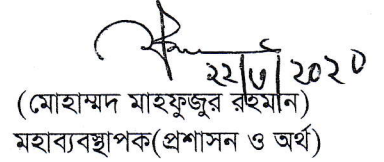 ২২|৩|২০২০
(মোহাম্মদ মাহফুজুর রহমান)
মহাব্যবস্থাপক(প্রশাসন ও অর্থ)